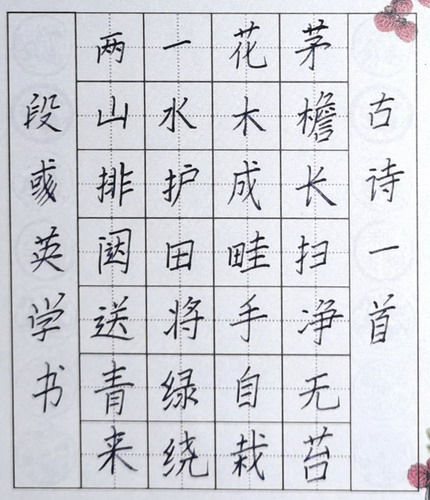 古诗一首
茅檐长扫净无苔
花木成畦手自栽
一水护田将绿绕
两山排闼送青来
段彧英学书